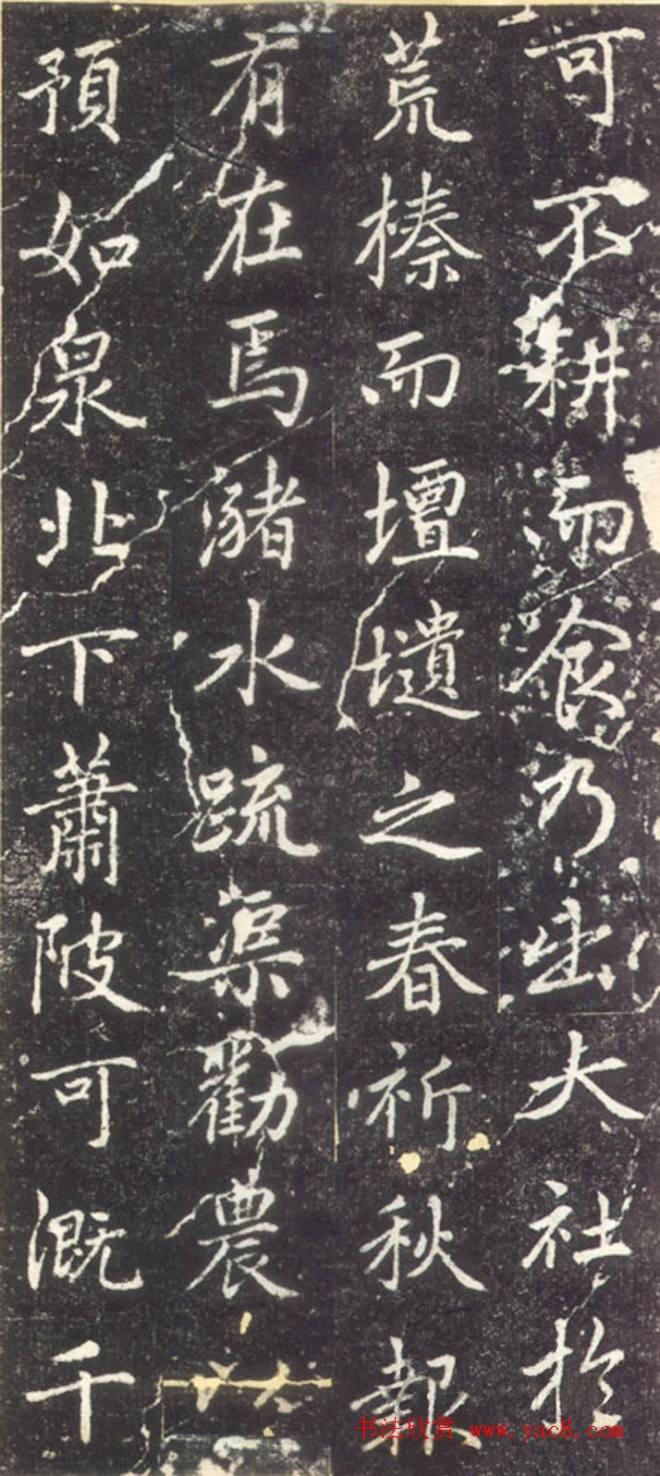 可不耕而食乃出大社於
荒榛而壇壝之春祈秋報
有在焉瀦水疏渠勸農
預如泉北下蕭陂可溉千
书法欣赏 www.yac8.com